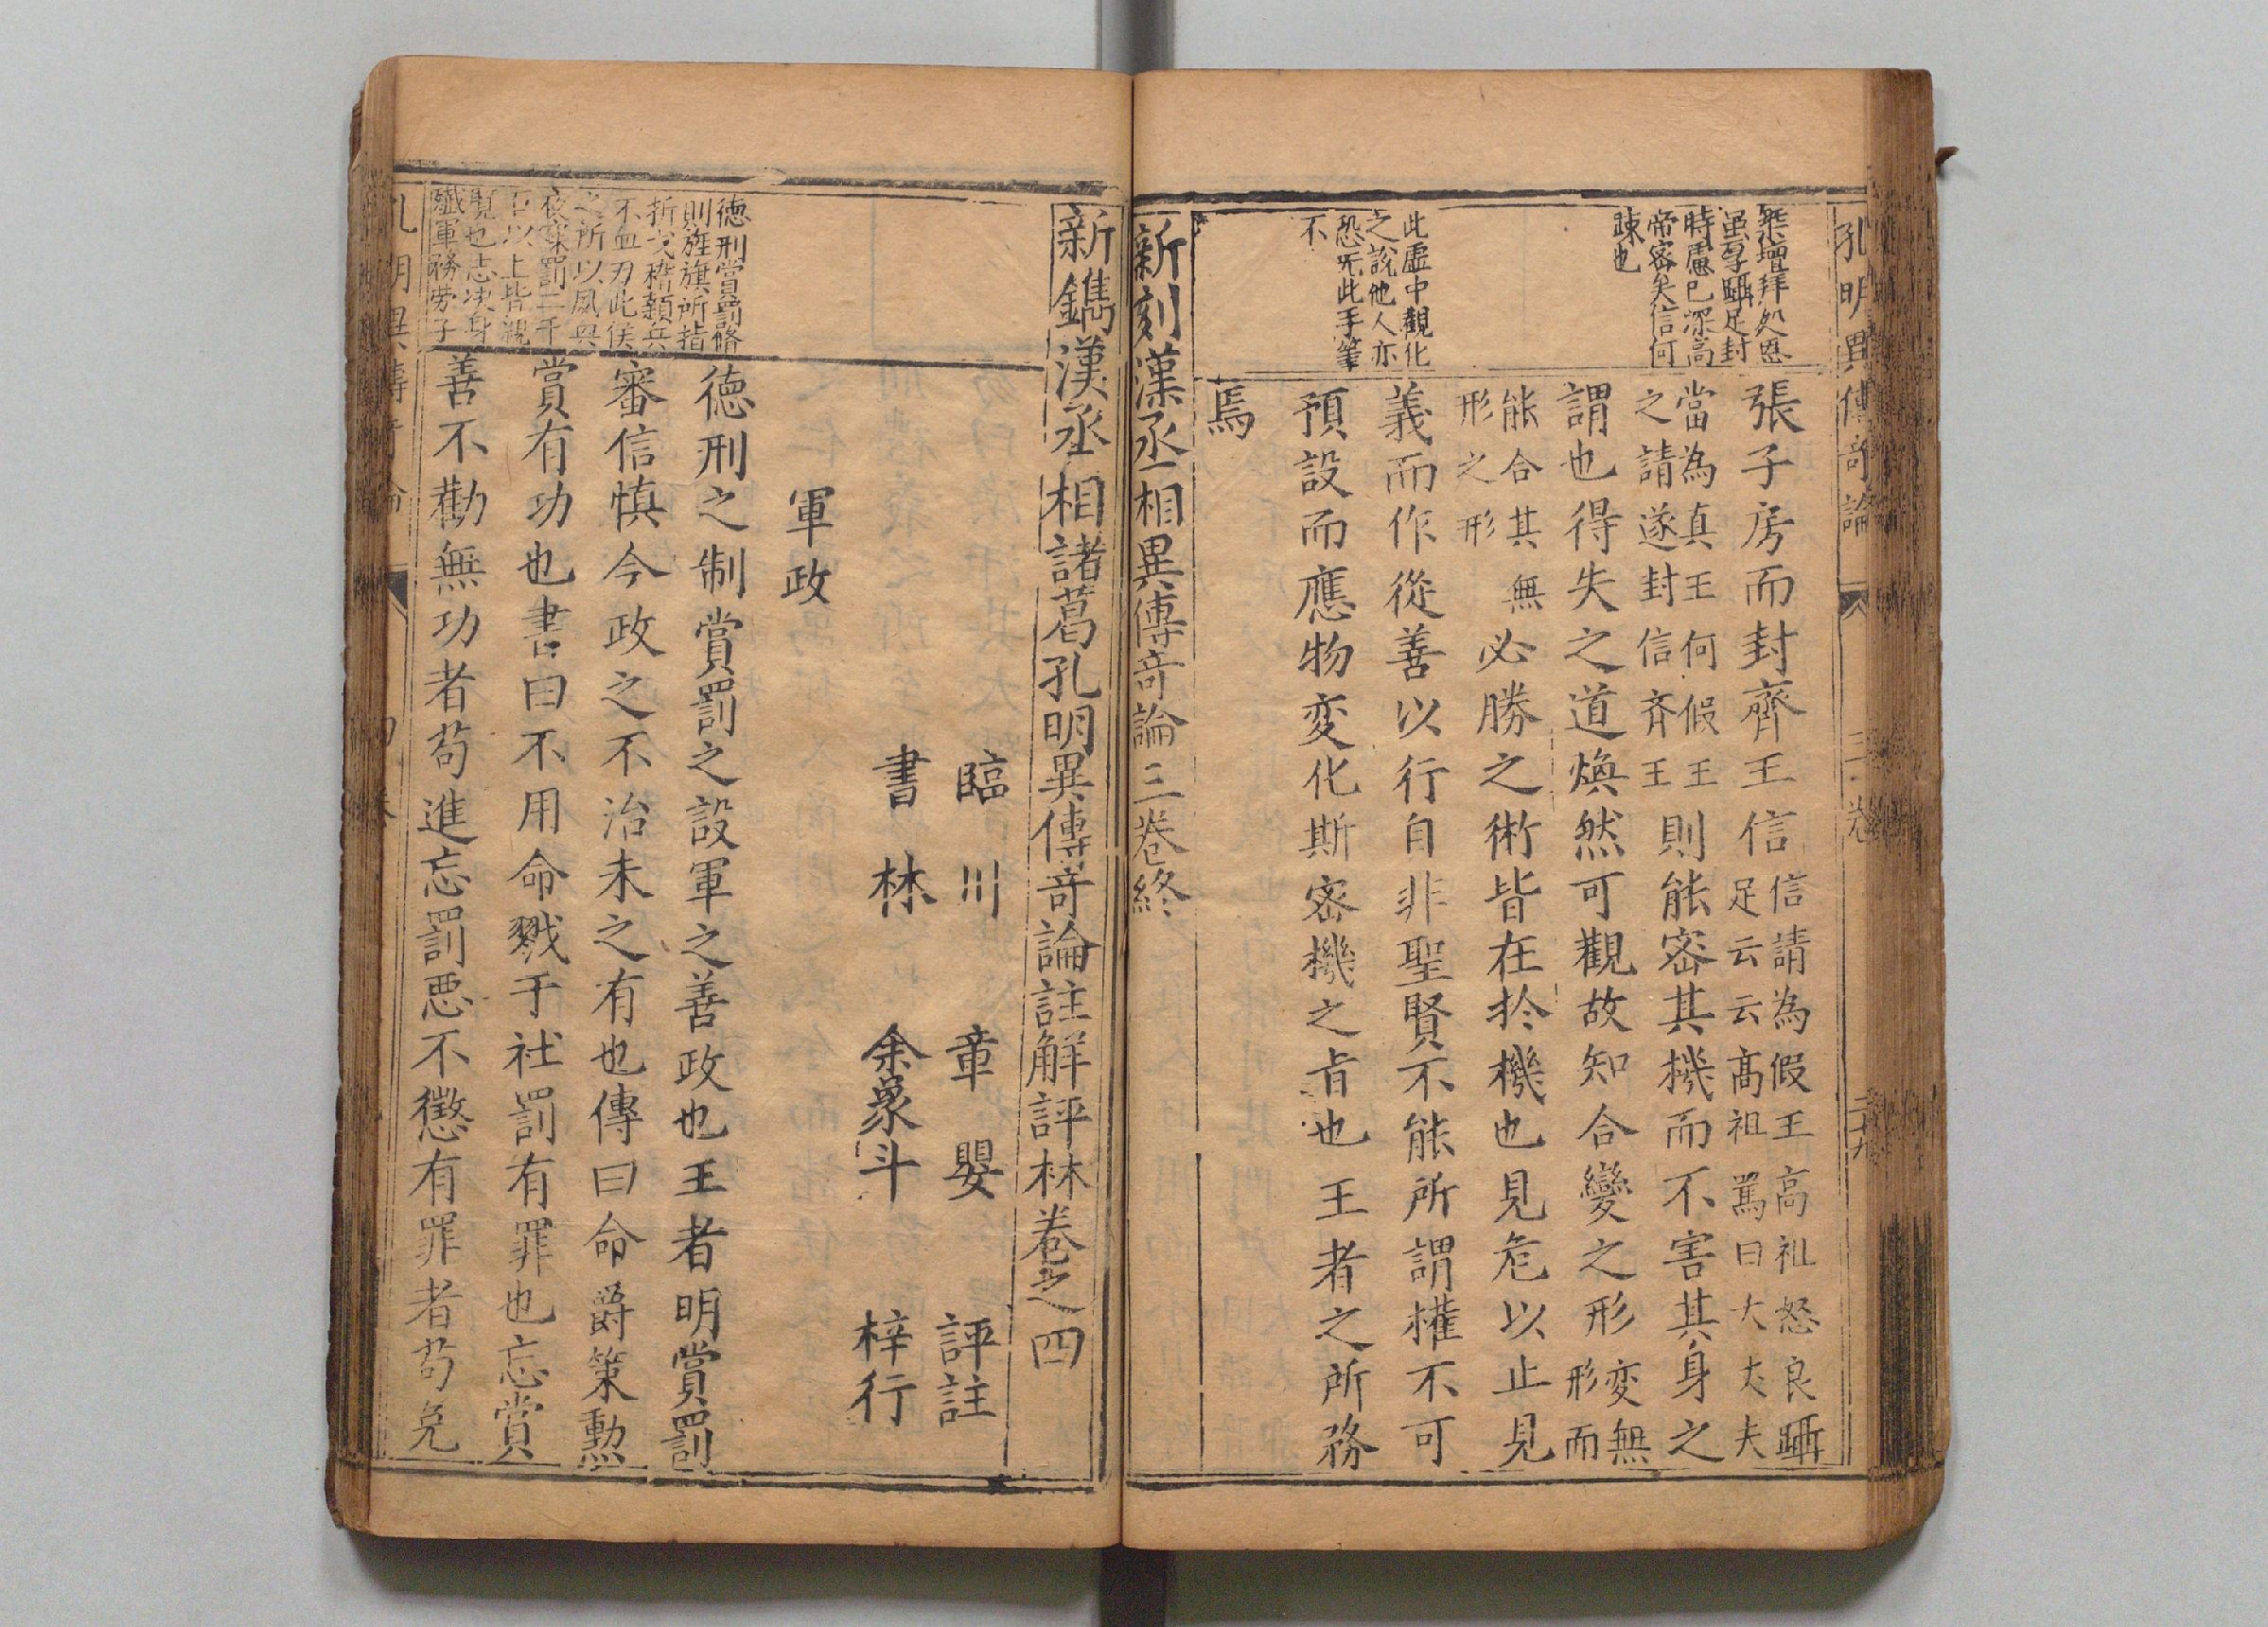 孔明異傳竒論 三卷 二十九
築壇拜処恩
虽厚躡足封
時慮已深高
帝密矣信何
踈也
此虛中觀化
之說他人亦
恐旡此手筆
不
張子房而封齊王信信請為假王高祖怒良躡足云云高祖罵曰大丈夫
當為真王何假王之請遂封信斉王則能密其機而不害其身之
謂也得失之道煥然可觀故知合變之形変無形而
能合其無形之形必勝之術皆在於機也見危以止見
義而作從善以行自非聖賢不能所謂權不可
預設而應物変化斯密機之㫖也王者之所務
焉
新刻漢丞相異傳竒論三卷終
新鐫漢丞相諸葛孔明異傳竒論註解評林卷之四
臨川 章嬰 評註
書林 余象斗 梓行
軍政
德刑賞罰脩
則旌旗所指
折戈稽顙兵
不血刃此侯
之所以夙興
夜寐罰二十
已以上皆親
覽也志决身
殱軍務勞子
德刑之制賞罰之設軍之善政也王者明賞罰
審信慎今政之不治未之有也傳曰命爵策勲
賞有功也書曰不用命戮于社罰有罪也忘賞
善不勸無功者苟進忘罰悪不懲有罪者苟免